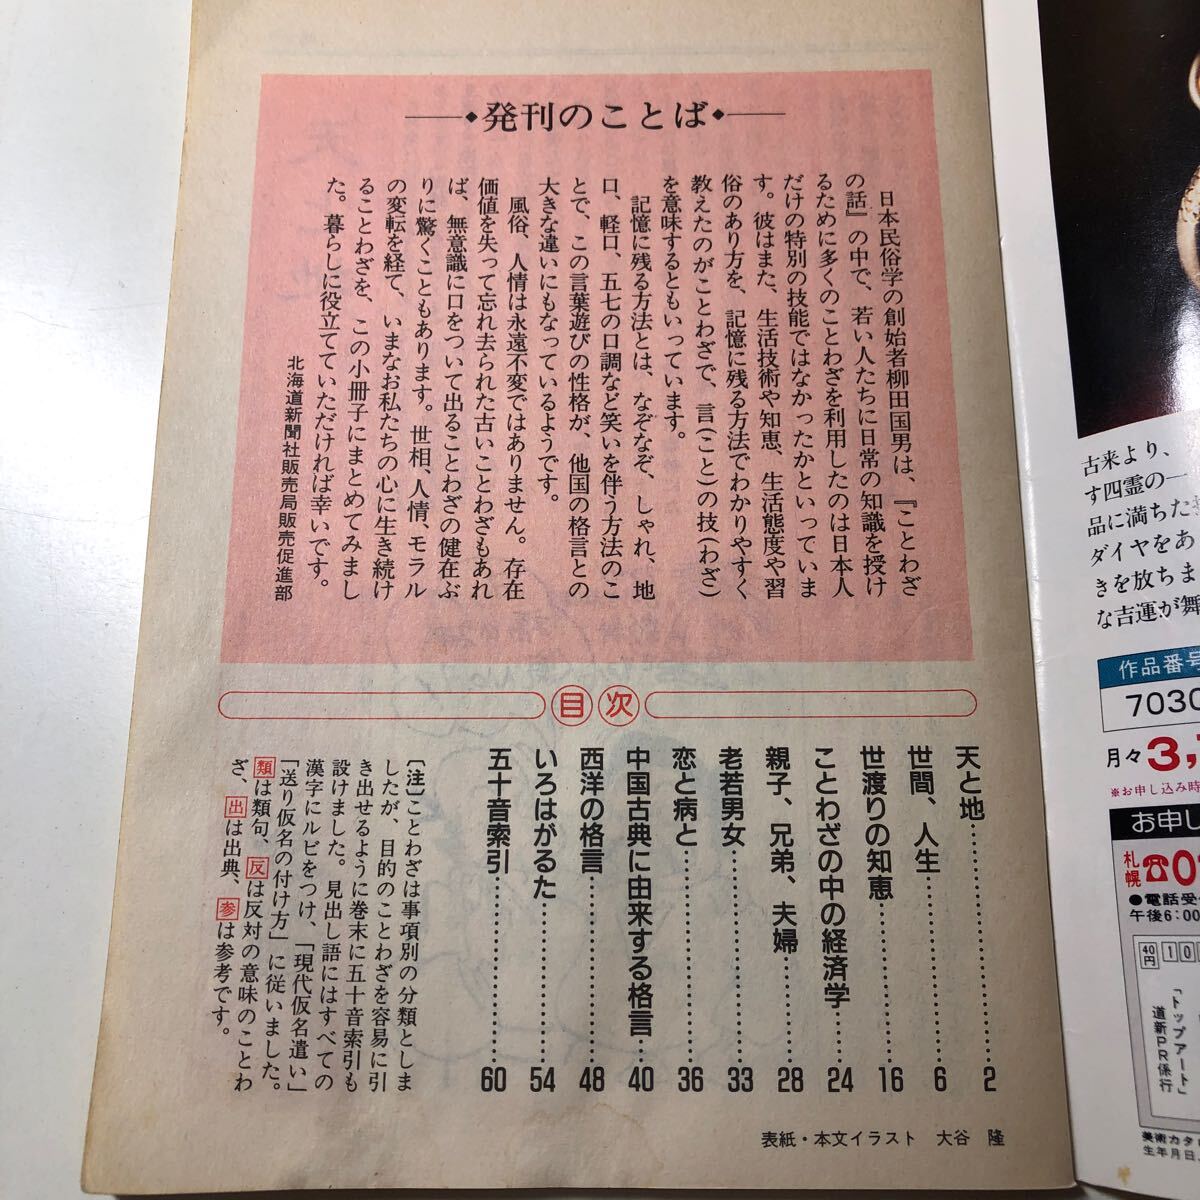 発刊のことば
日本民俗学の創始者柳田国男は、『ことわざ
の話』の中で、若い人たちに日常の知識を授け
るために多くのことわざを利用したのは日本人
だけの特別の技能ではなかったかといっていま
す。彼はまた、生活技術や知恵、生活態度や習
俗のあり方を、記憶に残る方法でわかりやすく
教えたのがことわざで、言(こと)の技(わざ)
を意味するともいっています。
記憶に残る方法とは、なぞなぞ、しゃれ、地
口、軽口、五七の口調など笑いを伴う方法のこ
とで、この言葉遊びの性格が、他国の格言との
大きな違いにもなっているようです。
風俗、人情は永遠不変ではありません。存在
価値を失って忘れ去られた古いことわざもあれ
ば、無意識に口をついて出ることわざの健在ぶ
りに驚くこともあります。世相、人情、モラル
の変転を経て、いまなお私たちの心に生き続け
ることわざを、この小冊子にまとめてみまし
た。暮らしに役立てていただければ幸いです。
北海道新聞社販売局販売促進部
目次
天と地……2
世間、人生……6
世渡りの知恵……16
ことわざの中の経済学……24
親子、兄弟、夫婦……28
老若男女……33
恋と病と……36
中国古典に由来する格言……40
西洋の格言……48
いろはがるた……54
五十音索引……60
〔注〕ことわざは事項別の分類としま
したが、目的のことわざを容易に引
き出せるように巻末に五十音索引も
設けました。見出し語にはすべての
漢字にルビをつけ、「現代仮名遣い」
「送り仮名の付け方」に従いました。
類は類句、反は反対の意味のことわ
ざ、出は出典、参は参考です。
表紙・本文イラスト 大谷 隆
古来より、
す四霊の一
品に満ちた
ダイヤをあ
きを放ちま
な吉運が舞
作品番号
7030
月々3,
※お申し込み時
お申し
札幌☎0
●電話受
午後6:00
40円
10
「トップアート」
道新PR係行
美術カタ
生年月日、